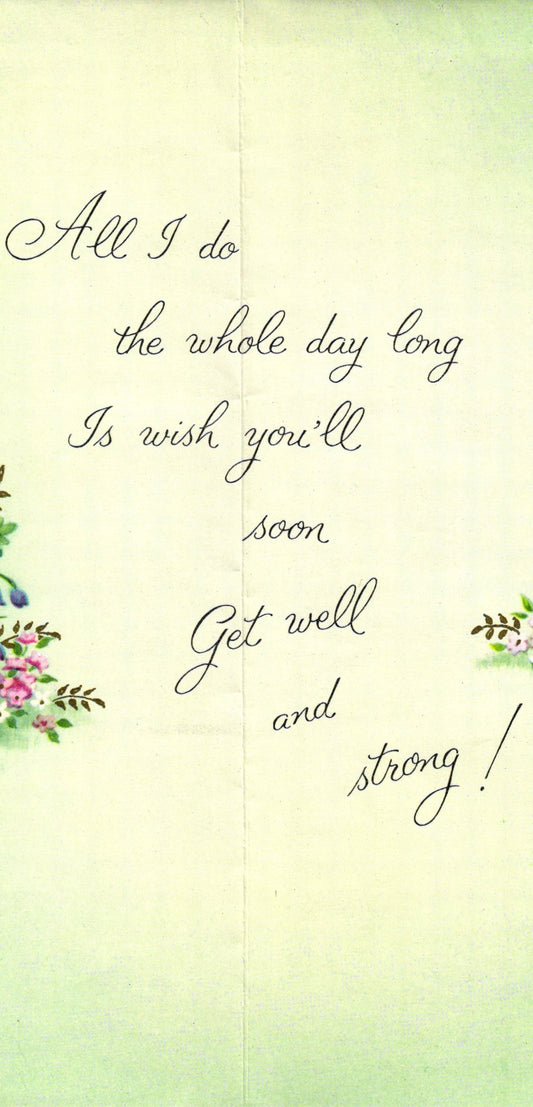 All I do
the whole day long
Is wish you'll
soon
Get well
and
strong!